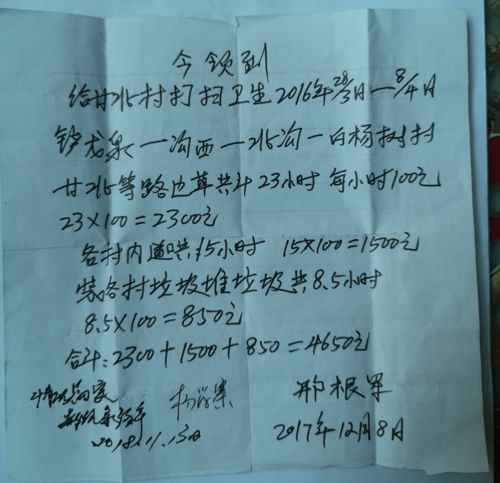 今领到
给甘北村打扫卫生2016年28/3日—8/4日
铲龙泉—沟西—北沟—白杨树村
甘北等路边草共计23小时 每小时100元
23×100=2300元
各村内道共15小时 15×100=1500元
装各村垃圾堆垃圾共8.5小时
8.5×100=850元
合计:2300+1500+850=4650元
邢根军
2017年12月8日
2018.11.13日